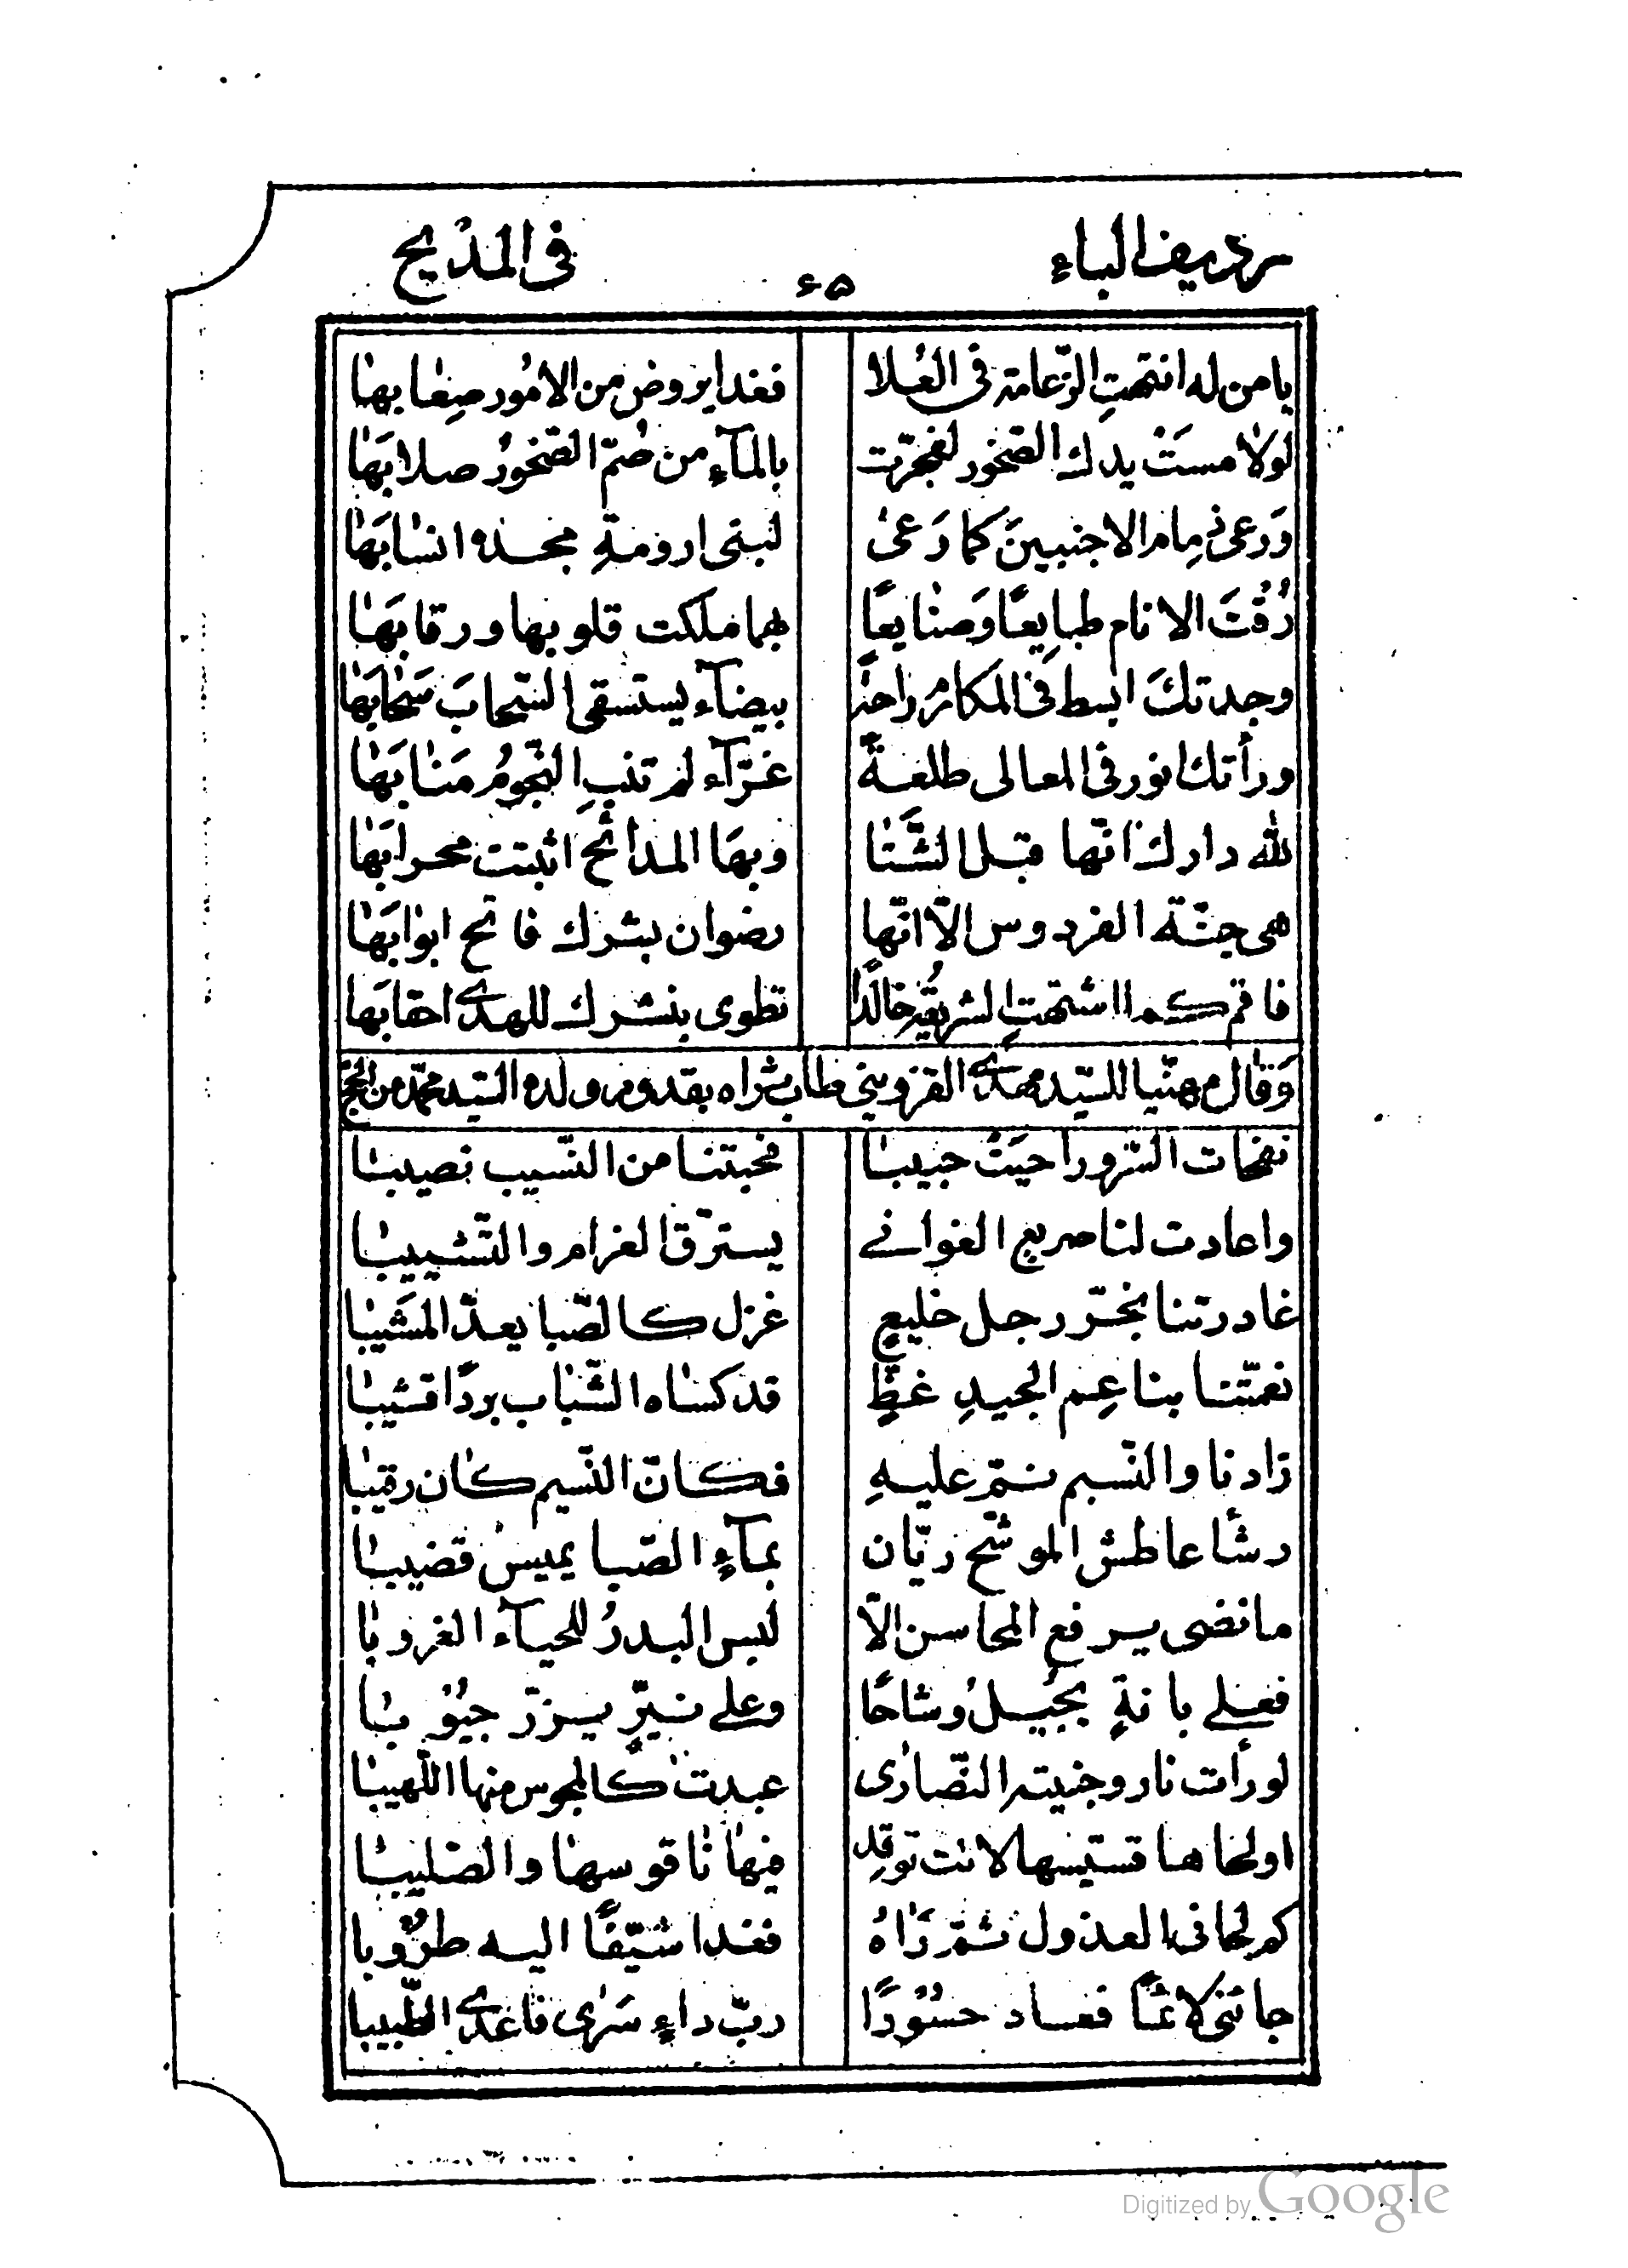 رديف الباء ٦٥ في المديح
يا من له انتهتِ الزّعامة في العُلا فغدا يروض من الامُور صِعٰابهٰا
لولامستْ يدك الصّخور لفجرّت بالمآءِ من صُمّ الصّخورُ صلابَهٰا
وَرعى ذِمام الاجنبيينَ كما رَعىٰ لبنى ارومةِ مجده انسٰابَهٰا
رُقْتَ الانام طبايعًا وَصنٰايعًا بهما ملكت قلوبها ورقابهٰا
وجدتكَ ابسط في المكارم راحةً بيضآء يستسقى السّحابَ سَحٰابَهٰا
ورأتك انور في المعالى طلعةً غرّآء لم تنبِ النّجومُ مَنٰابَهٰا
للّه دارك انّها قبل الشّتٰا وبهَا المدائح اثبتت محرابَهٰا
هى جنّة الفردوس الاّ انّها رضوان بشرك فاتح ابوٰابَهٰا
فاقم كما اشتهتِ الشريعةُ خالدًا تطوى بنشرك للهدى احقابَهٰا
وَقٰال مهنّيا للسّيّد مهدى القزوينى طاب ثراه بقدوم ولده السّيد محمّد من الحجّ
نفحات السّرور احيَتْ حبيبٰا فحبتنا من النّسيب نصيبٰا
واعادت لنا صريع الغوانے يسترقّ الغرام والتّشبيبٰا
غادرتنا نجرّ رجل خليعٍ غزل كالصّبا يعدّ المَشيبٰا
نعمّتنا بناعِم الجيدِ غضٍّ قد كسٰاه الشّبٰاب بردًا قشيبٰا
زادنا والنّسيم نمّ عليهِ فكانّ النّسيم كان رقيبٰا
رشأ عاطش الموشّح ريّان بمآءِ الصّبا يميسُ قضيبٰا
ما نضى برقع المحاسن الاّ لبس البدرُ للحيآء الغروبٰا
فعلے بانةٍ يجيلُ وشاحًا وعلے نيّرٍ يزرّ جيُوبٰا
لو رأت نار وجنيته النّصارٰى عبدت كالمجوس منها اللّهيبٰا
او لحاها قسّيسها لانثت توقد فيهٰا نٰاقوسهٰا والصّليبٰا
كم لحانى العذول ثمّ رَاٰهُ فغدا شيّقًا اليه طرُوبا
جائنى لائمًا فعاد حسُودًا ربّ داءٍ سَرٰى فاعدى الطّبيبا
Digitized by Google